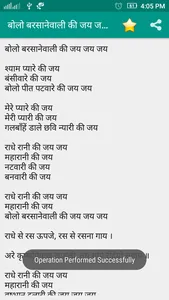 4:05 PM
बोलो बरसानेवाली की जय ज...
बोलो बरसानेवाली की जय जय जय
श्याम प्यारे की जय
बंसीवारे की जय
बोलो पीत पटवारे की जय जय
मेरे प्यारे की जय
मेरी प्यारी की जय
गलबाँहें डाले छवि न्यारी की जय
राधे रानी की जय जय
महारानी की जय
नटवारी की जय
बनवारी की जय
राधे रानी की जय जय
महारानी की जय
बोलो बरसानेवाली की जय जय जय
राधे से रस ऊपजे, रस से रसना गाय ।
अरे
Operation Performed Successfully
राधे रानी की जय जय
महारानी की जय
की जय जय जय